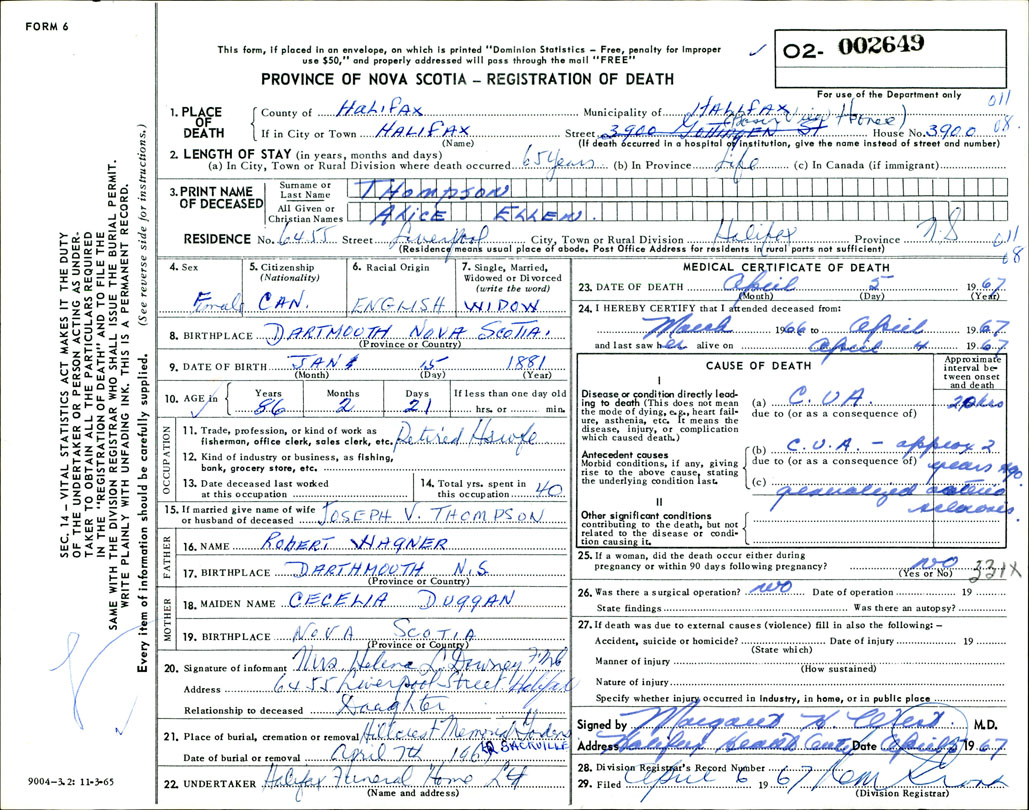 FORM 6
This form, if placed in an envelope, on which is printed "Dominion Statistics – Free, penalty for improper
use $50," and properly addressed will pass through the mail "FREE"
PROVINCE OF NOVA SCOTIA – REGISTRATION OF DEATH
O2- 002649
For use of the Department only
011
08.
1. PLACE OF DEATH
County of HALIFAX Municipality of HALIFAX
If in City or Town HALIFAX Street 3900 GOTTINGEN ST House No. 3900
(Name) (If death occurred in a hospital or institution, give the name instead of street and number)
2. LENGTH OF STAY (in years, months and days)
(a) In City, Town or Rural Division where death occurred 65 years (b) In Province Life (c) In Canada (if immigrant)
3. PRINT NAME OF DECEASED
Surname or Last Name THOMPSON
All Given or Christian Names ALICE ELLEN.
RESIDENCE No. 6455 Street Liverpool City, Town or Rural Division Halifax Province N.S
(Residence means usual place of abode. Post Office Address for residents in rural parts not sufficient)
011
08
4. Sex Female
5. Citizenship (Nationality) CAN.
6. Racial Origin ENGLISH
7. Single, Married, Widowed or Divorced (write the word) WIDOW
8. BIRTHPLACE DARTMOUTH NOVA SCOTIA.
(Province or Country)
9. DATE OF BIRTH JAN 15 1881
(Month) (Day) (Year)
10. AGE in Years 86 Months 2 Days 21 If less than one day old hrs. or min.
OCCUPATION
11. Trade, profession, or kind of work as
fisherman, office clerk, sales clerk, etc. Retired Hswfe
12. Kind of industry or business, as fishing,
bank, grocery store, etc.
13. Date deceased last worked
at this occupation
14. Total yrs. spent in
this occupation 40
15. If married give name of wife
or husband of deceased JOSEPH V. THOMPSON
FATHER
16. NAME ROBERT WAGNER
17. BIRTHPLACE DARTHMOUTH N.S
(Province or Country)
MOTHER
18. MAIDEN NAME CECELIA DUGGAN
19. BIRTHPLACE NOVA SCOTIA
(Province or Country)
20. Signature of informant Mrs Helena L. Downey
Address 6455 Liverpool Street Halifax
Relationship to deceased Daughter
21. Place of burial, cremation or removal Hillcrest Memorial Gardens
Date of burial or removal April 7th 1967 SACKVILLE
22. UNDERTAKER Halifax Funeral Home Ltd
(Name and address)
MEDICAL CERTIFICATE OF DEATH
23. DATE OF DEATH April 5 1967
(Month) (Day) (Year)
24. I HEREBY CERTIFY that I attended deceased from:
March 1966 to April 1967
and last saw her alive on April 4 1967
CAUSE OF DEATH
Approximate interval between onset and death
I
Disease or condition directly leading to death (This does not mean the mode of dying, e.g., heart failure, asthenia, etc. It means the disease, injury, or complication which caused death.)
(a) C.V.A. 20 hrs
due to (or as a consequence of)
Antecedent causes
Morbid conditions, if any, giving rise to the above cause, stating the underlying condition last.
(b) C.V.A. – approx 2
due to (or as a consequence of) years ago
(c) generalized arterio
sclerosis.
II
Other significant conditions
contributing to the death, but not related to the disease or condition causing it.
25. If a woman, did the death occur either during
pregnancy or within 90 days following pregnancy? NO
(Yes or No)
331X
26. Was there a surgical operation? NO Date of operation 19
State findings Was there an autopsy?
27. If death was due to external causes (violence) fill in also the following: –
Accident, suicide or homicide? Date of injury 19
(State which)
Manner of injury
(How sustained)
Nature of injury
Specify whether injury occurred in industry, in home, or in public place
Signed by Margaret H M.D.
Address Halifax Health Centre Date April 5 1967
28. Division Registrar's Record Number
29. Filed April 6 1967
(Division Registrar)
SEC. 14 – VITAL STATISTICS ACT MAKES IT THE DUTY
OF THE UNDERTAKER OR PERSON ACTING AS UNDER-
TAKER TO OBTAIN ALL THE PARTICULARS REQUIRED
IN THE "REGISTRATION OF DEATH" AND TO FILE THE
SAME WITH THE DIVISION REGISTRAR WHO SHALL ISSUE THE BURIAL PERMIT.
WRITE PLAINLY WITH UNFADING INK. THIS IS A PERMANENT RECORD.
Every item of information should be carefully supplied. (See reverse side for instructions.)
9004-3.2: 11-3-65